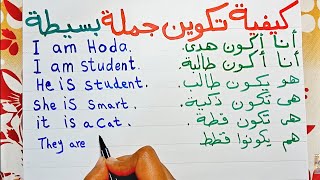 كيفية تكوين جملة بسيطة
I am Hoda. أنا أكون هدى.
I am student. أنا أكون طالبة.
He is student. هو يكون طالب.
she is smart. هى تكون ذكية.
it is a cat. هى تكون قطة.
They are هم يكونوا قطط